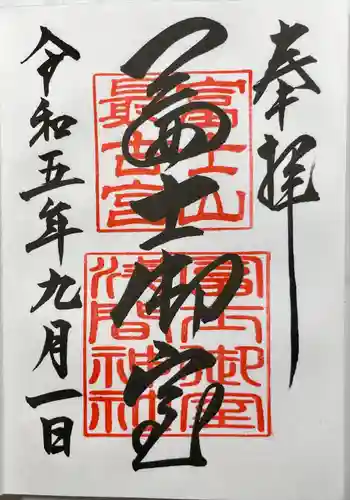 奉拝
富士山
最古宮
富士御室
浅間神社
富士御室
令和五年九月一日